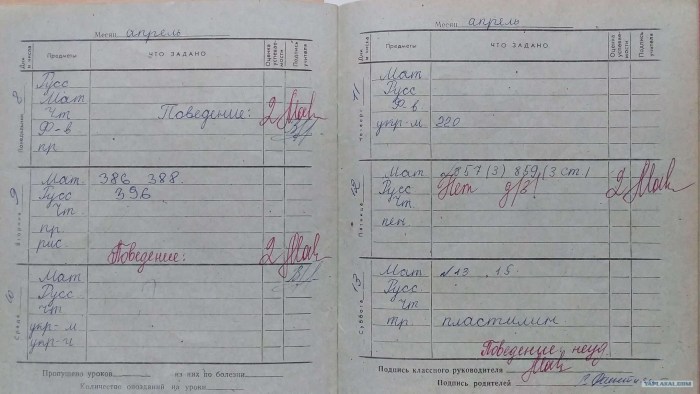 Месяц апрель
Дни и числа Предметы ЧТО ЗАДАНО Оценка успеваемости Подпись учителя
Понедельник 8
Русс
Мат
Чт Поведение: 2
Ф-в
пр
Вторник 9
Мат 386 388
Русс 396
Чт
пр.
рис
Поведение: 2
Среда 10
Мат
Русс
Чт
укр-м
укр-ч
Пропущено уроков из них по болезни
Количество опозданий на уроки
Месяц апрель
Дни и числа Предметы ЧТО ЗАДАНО Оценка успеваемости Подпись учителя
Четверг 11
Мат
Русс
Ф-в
укр-м 220
Пятница 12
Мат 857(3) 859(3 ст.)
Русс Нет д/з! 2
Чт
пен
Суббота 13
Мат №13 15
Русс
Чт
тр пластилин
Поведение неуд.
Подпись классного руководителя
Подпись родителей
YAPLAKAL.COM